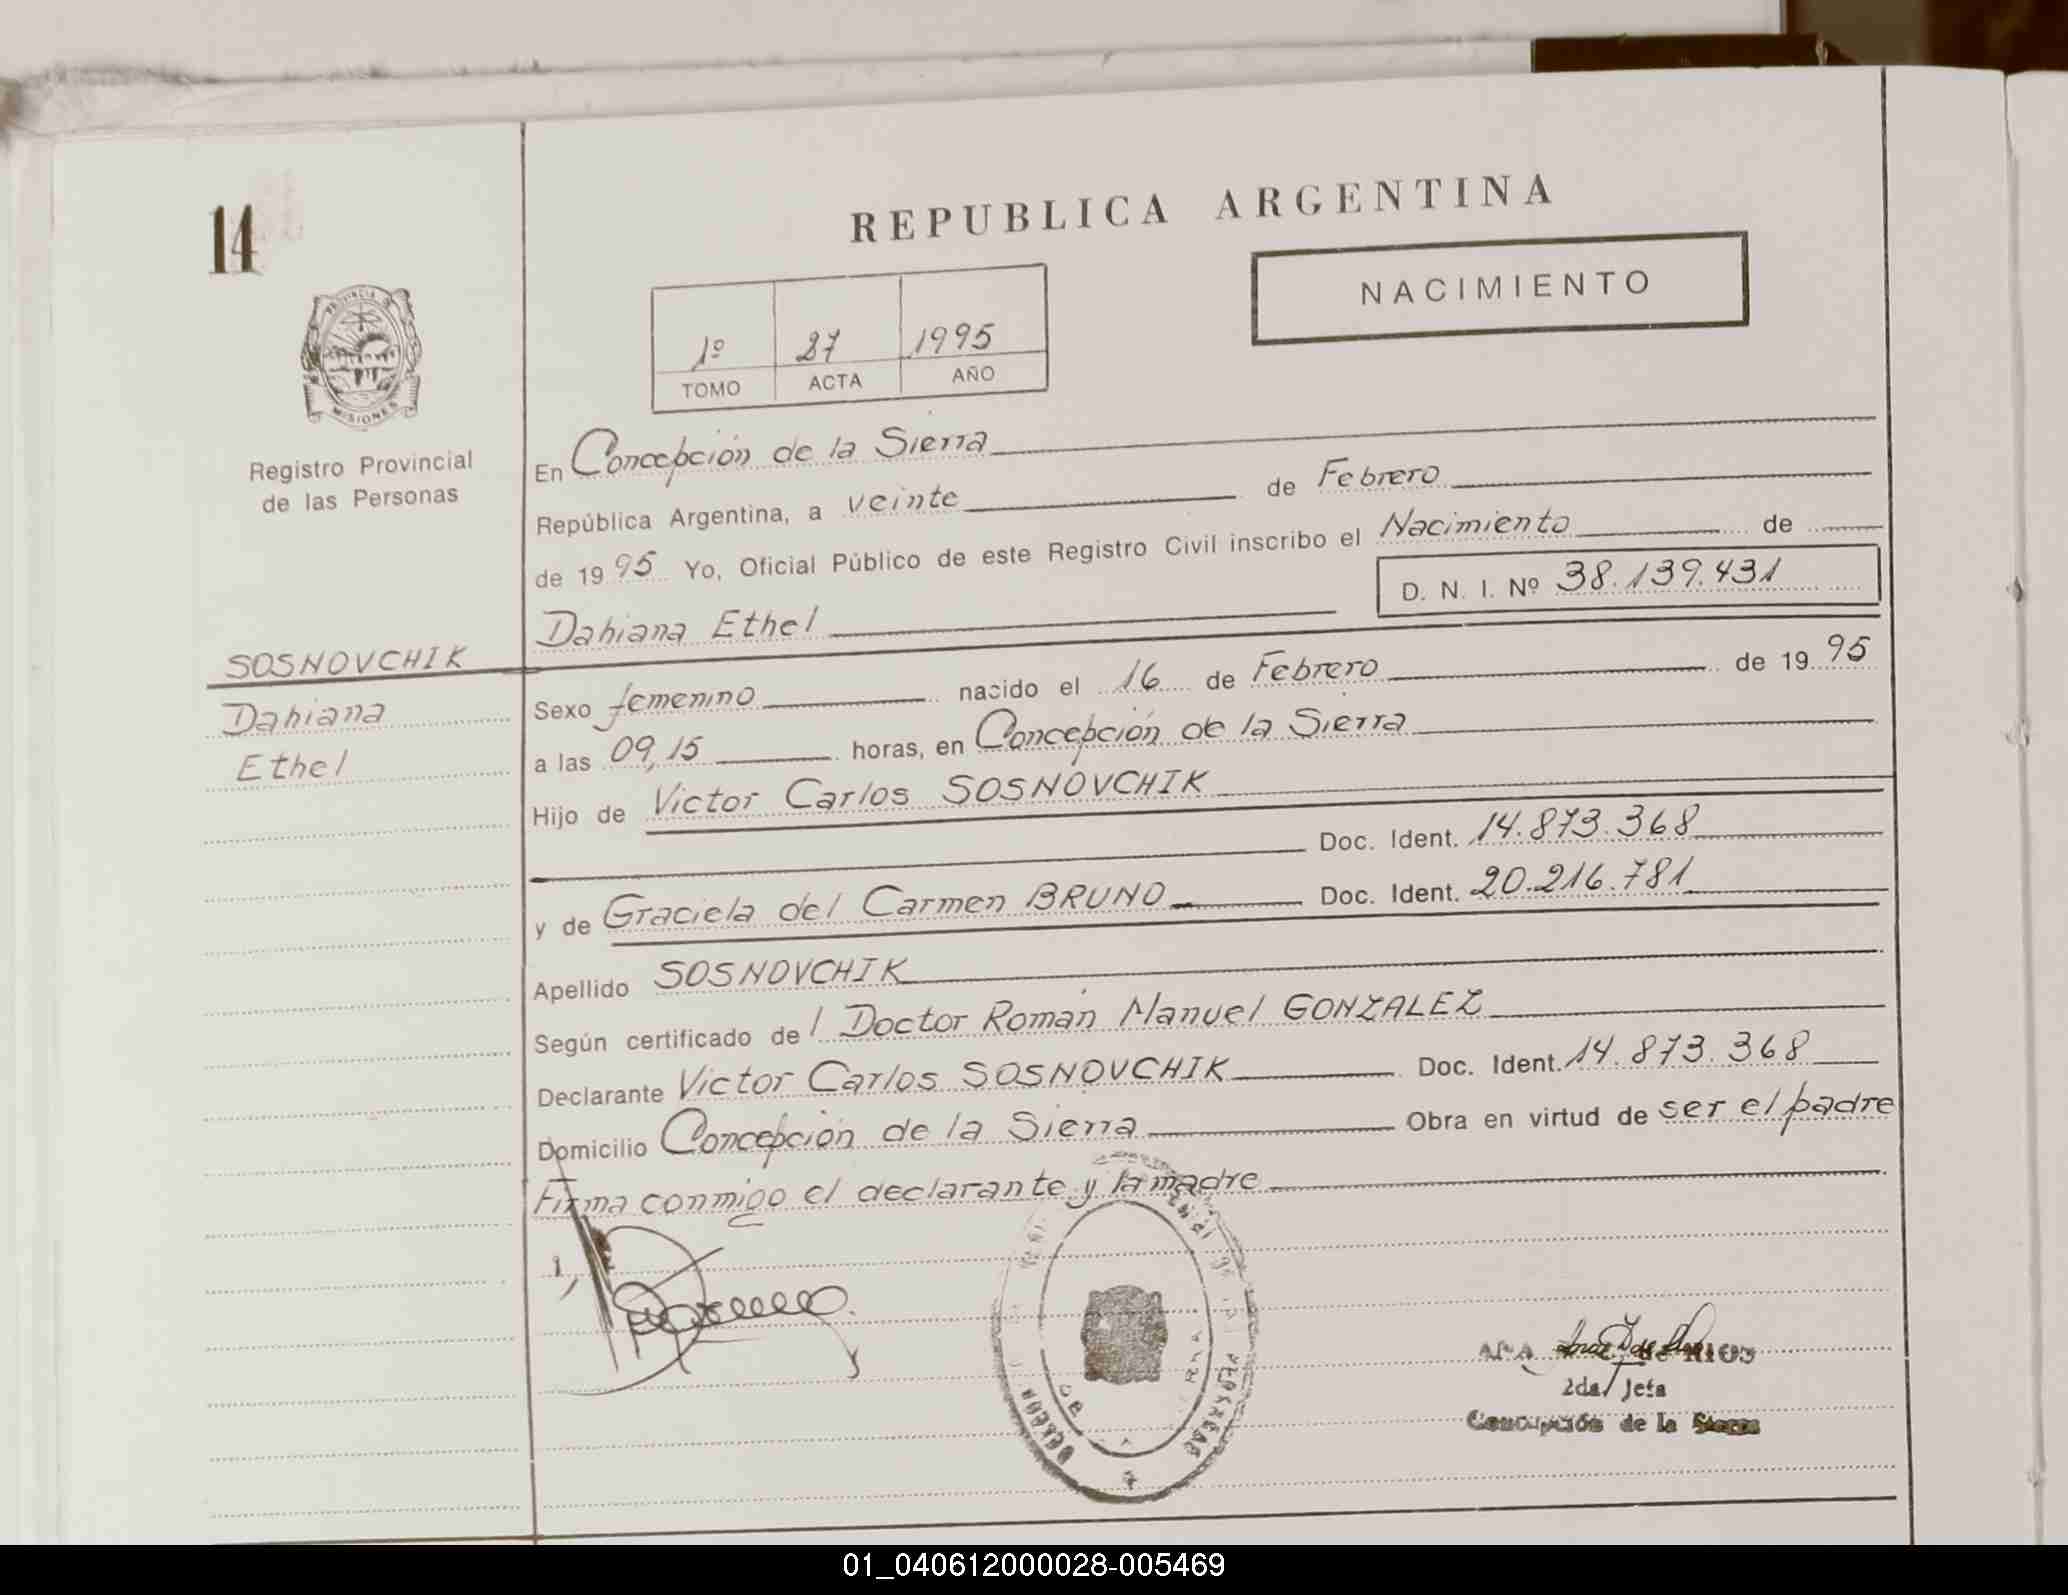 14
REPUBLICA ARGENTINA
NACIMIENTO
1º 27 1995
TOMO ACTA AÑO
PROVINCIA DE
MISIONES
Registro Provincial
de las Personas
SOSNOVCHIK
Dahiana
Ethel
En Concepción de la Sierra
República Argentina, a veinte de Febrero
de 1995 Yo, Oficial Público de este Registro Civil inscribo el Nacimiento de
D. N. I. Nº 38.139.431
Dahiana Ethel
Sexo femenino nacido el 16 de Febrero de 1995
a las 09,15 horas, en Concepción de la Sierra
Hijo de Victor Carlos SOSNOVCHIK
Doc. Ident. 14.873.368
y de Graciela del Carmen BRUNO Doc. Ident. 20.216.781
Apellido SOSNOVCHIK
Según certificado del Doctor Román Manuel GONZALEZ
Declarante Victor Carlos SOSNOVCHIK Doc. Ident. 14.873.368
Domicilio Concepción de la Sierra Obra en virtud de ser el padre
Firma conmigo el declarante y la madre
de RIOS
2da/ Jefa
Concepción de la Sierra
01_040612000028-005469